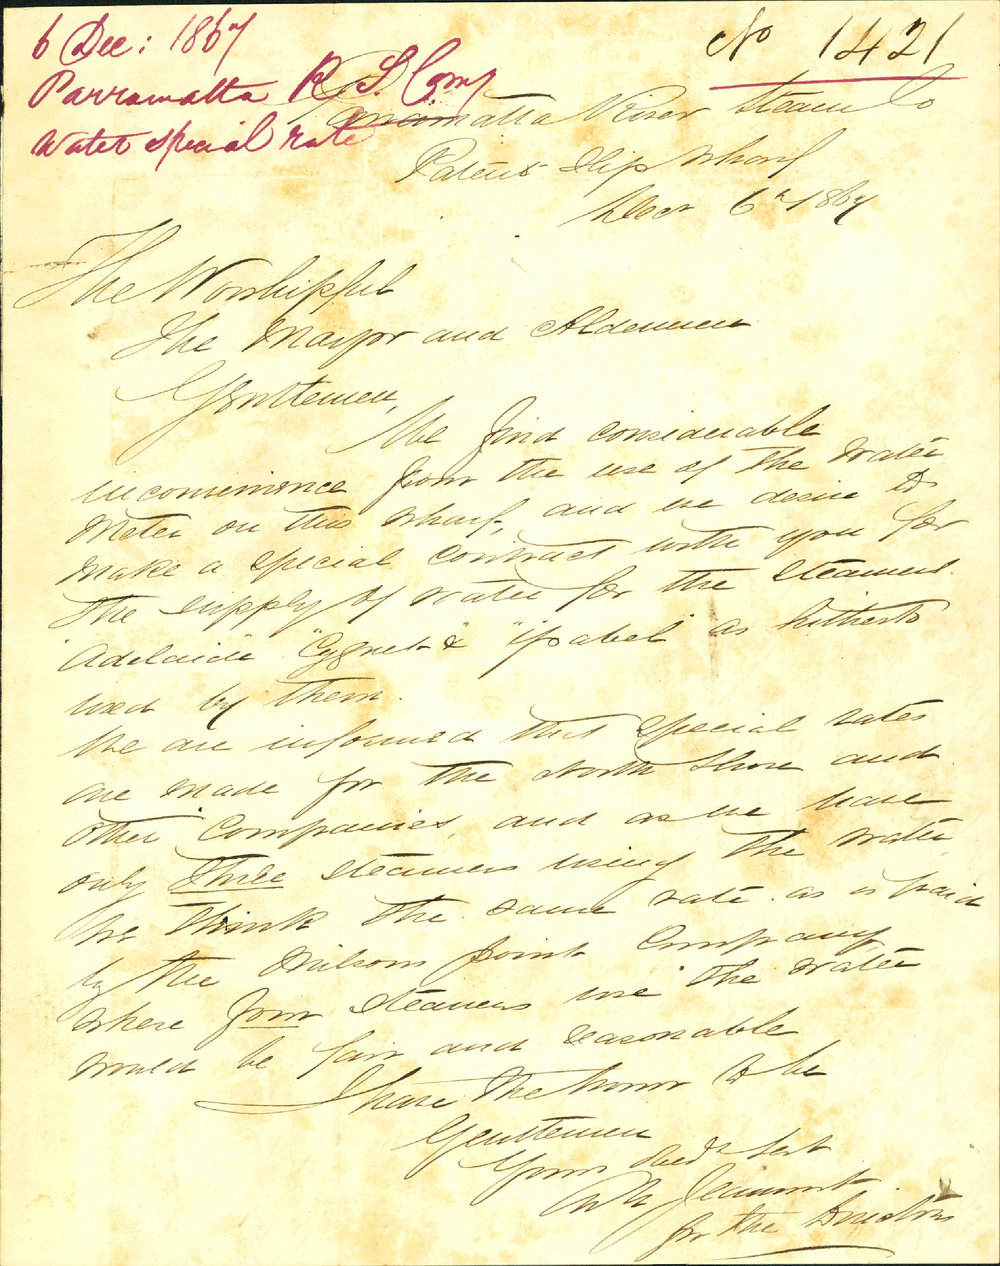 6 Dec: 1867
Parramatta R S Comp
Water special rate
No 1421
Parramatta River Steam Co
Patent Slip Wharf
Decr 6th 1867
The Worshipful
The Mayor and Aldermen
Gentlemen,
We find considerable
inconvenience from the use of the Water
Meter on this Wharf, and we desire to
make a special contract with you for
the supply of water for the Steamers
"Adelaide" "Cygnet" & "Ysabel" as hitherto
used by them.
We are informed that special rates
are made for the North Shore and
other Companies, and as we have
only three steamers using the water
we think the same rate as is paid
by the Milsons Point Company
where four steamers use the water
would be fair and reasonable
I have the honor to be
Gentlemen
Your Obedt Servt
for the Directors